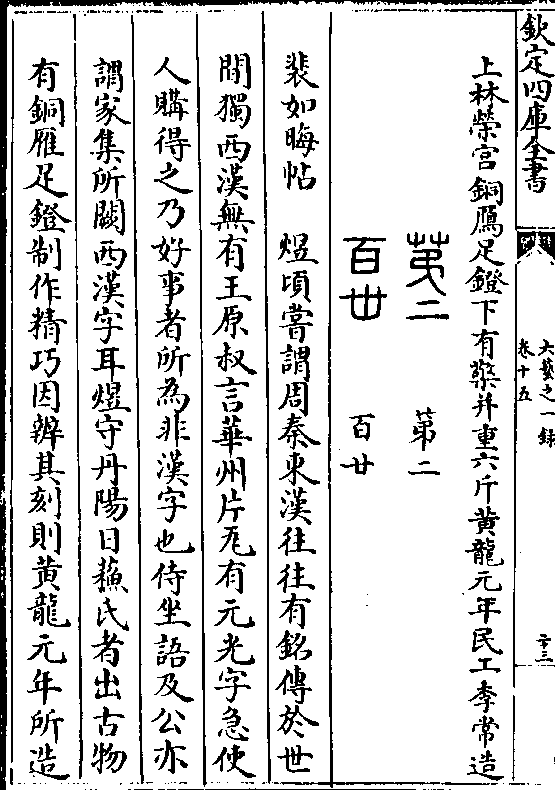 欽定四庫全書
六藝之一錄
卷十五
二十三
上林榮宮銅鴈足鐙下有槃并重六斤黃龍元年民工李常造
苐二
第二
百廿
百廿
裴如晦帖　煜頃嘗謂周秦東漢往往有銘傳於世
間獨西漢無有王原叔言華州片瓦有元光字急使
人購得之乃好事者所為非漢字也侍坐語及公亦
謂家集所闕西漢字耳煜守丹陽日蘓氏者出古物
有銅雁足鐙制作精巧因辨其刻則黃龍元年所造